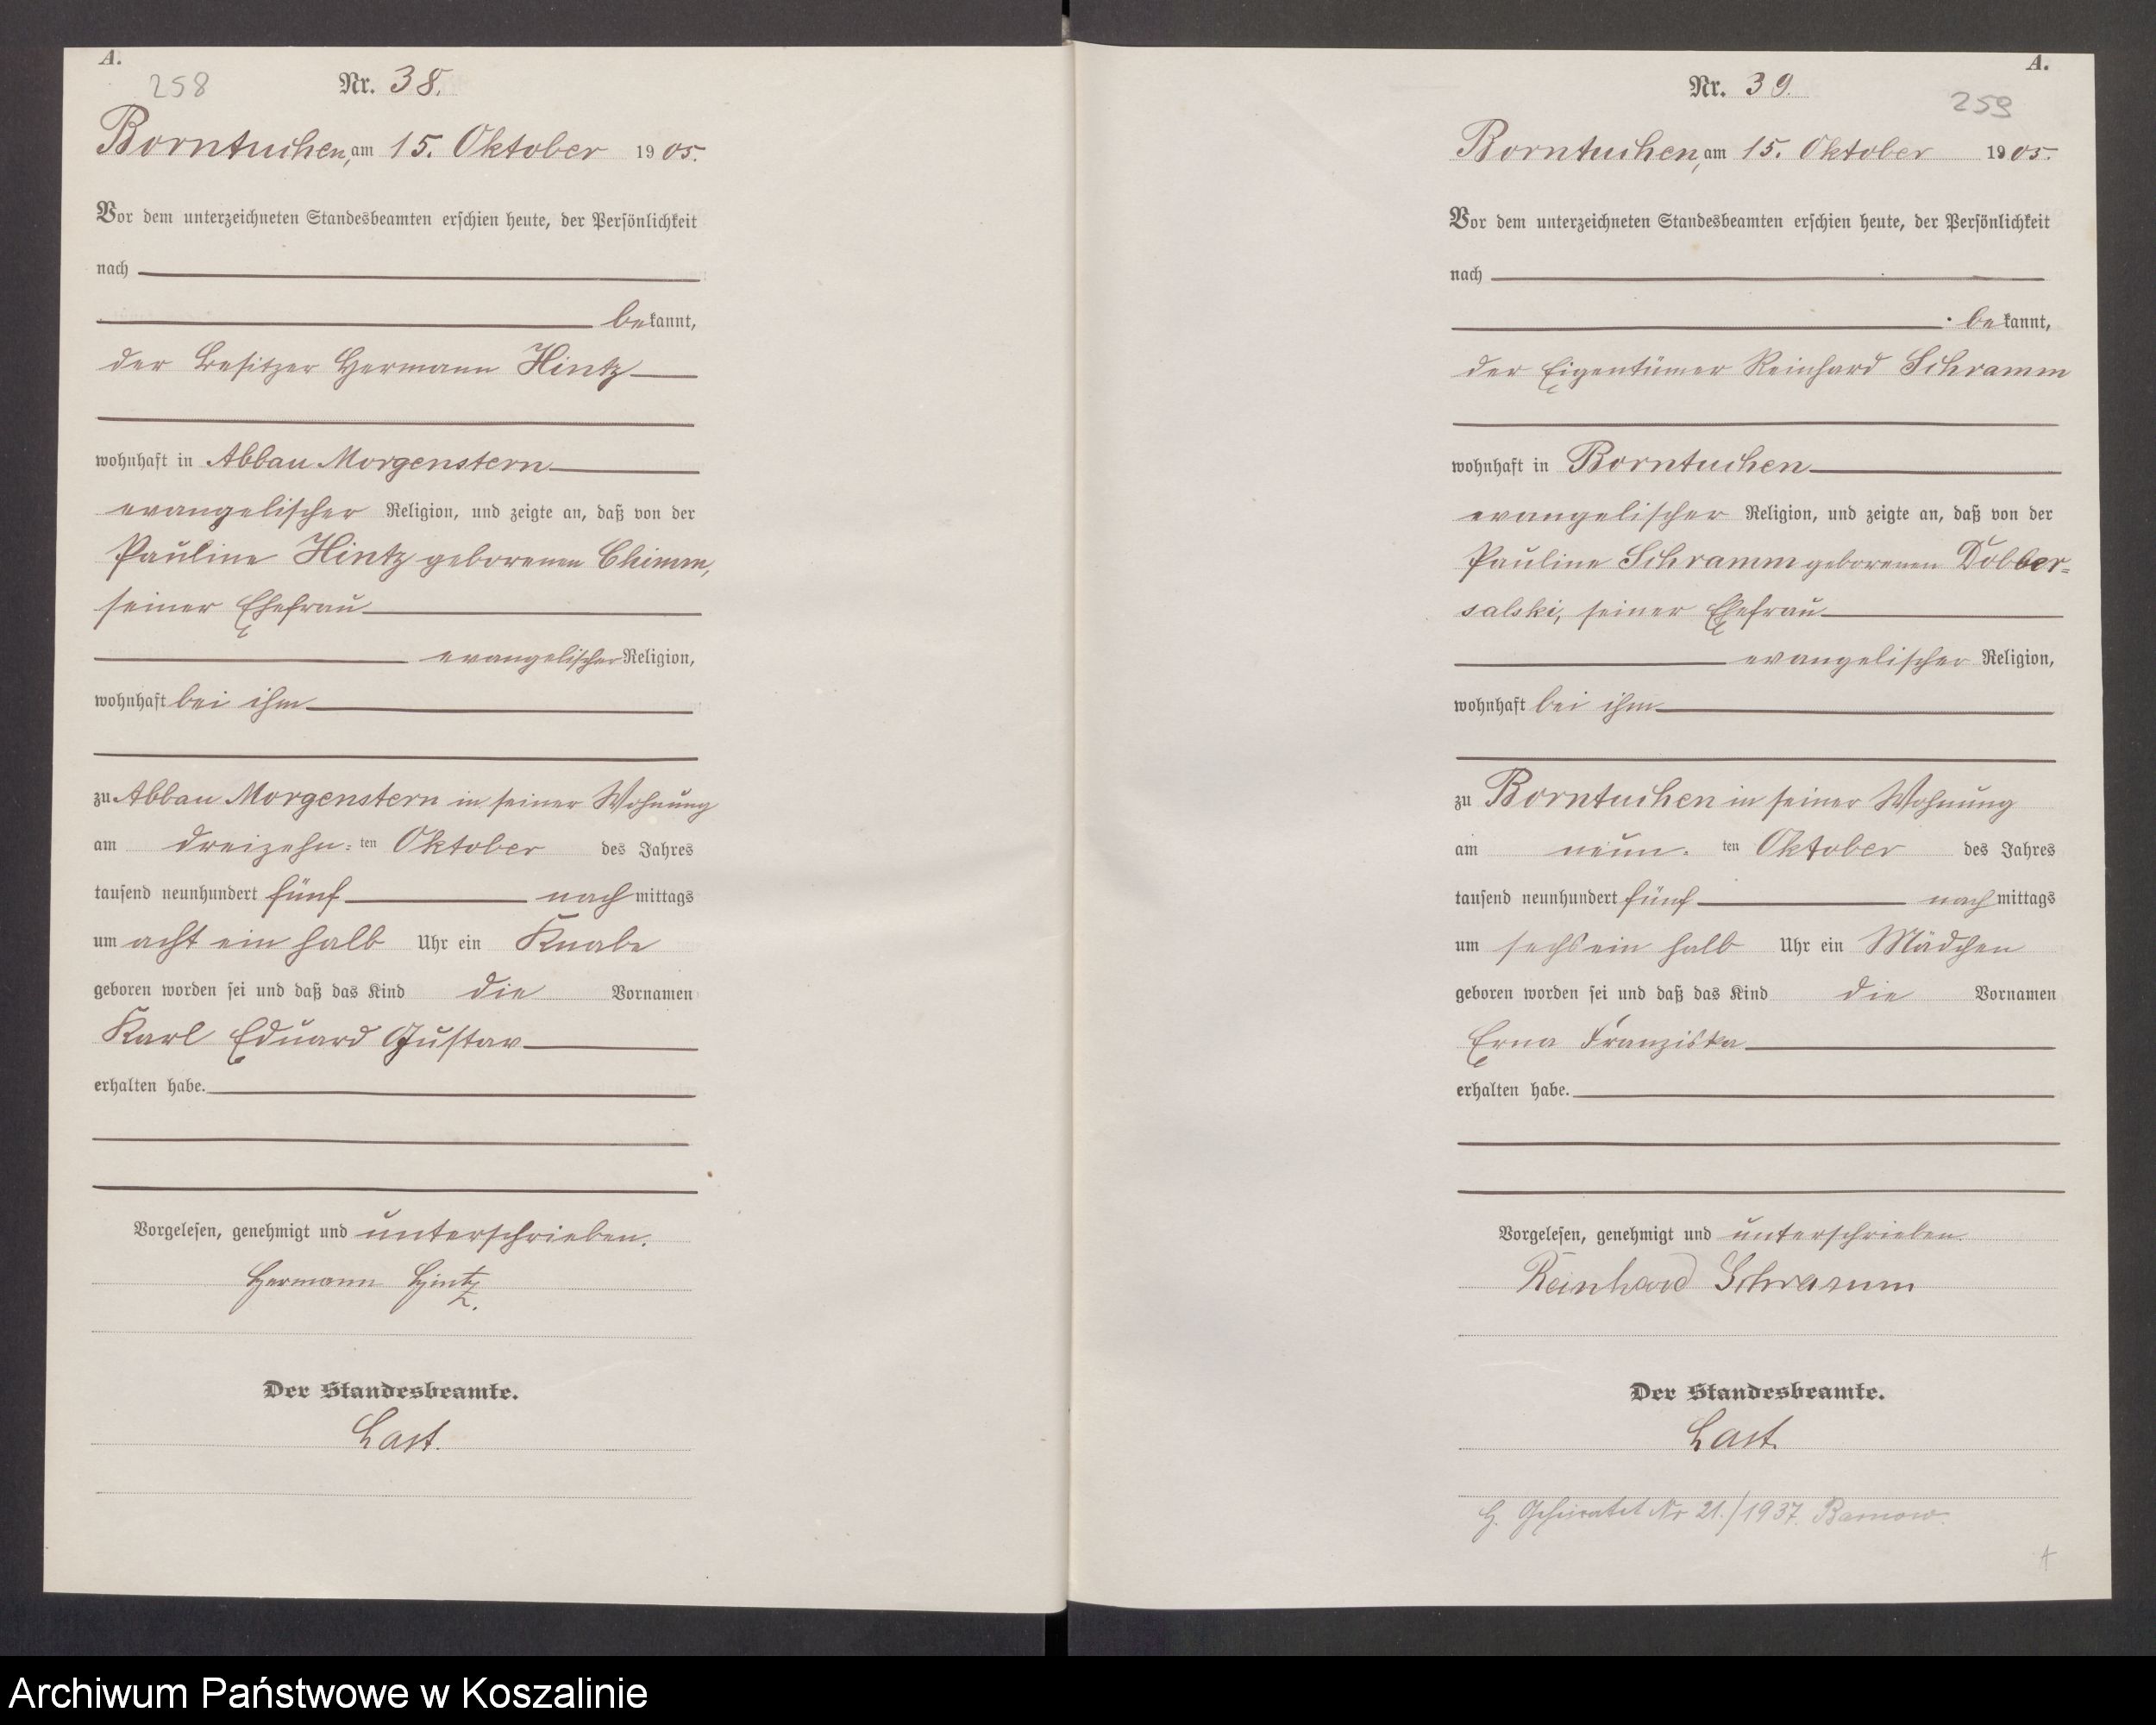 A.
258
Nr. 38.
Borntuchen, am 15. Oktober 1905.
Vor dem unterzeichneten Standesbeamten erschien heute, der Persönlichkeit
nach
bekannt,
der Besitzer Hermann Hintz
wohnhaft in Abbau Morgenstern
evangelischer Religion, und zeigte an, daß von der
Pauline Hintz geborenen Chimm,
seiner Ehefrau
evangelischer Religion,
wohnhaft bei ihm
zu Abbau Morgenstern in seiner Wohnung
am dreizehn=ten Oktober des Jahres
tausend neunhundert fünf nachmittags
um acht ein halb Uhr ein Knabe
geboren worden sei und daß das Kind die Vornamen
Karl Eduard Gustav
erhalten habe.
Vorgelesen, genehmigt und unterschrieben.
Hermann Hintz.
Der Standesbeamte.
Last.
A.
Nr. 39.
259
Borntuchen, am 15. Oktober 1905.
Vor dem unterzeichneten Standesbeamten erschien heute, der Persönlichkeit
nach
bekannt,
der Eigentümer Reinhard Schramm
wohnhaft in Borntuchen
evangelischer Religion, und zeigte an, daß von der
Pauline Schramm geborenen Dobber=
salski, seiner Ehefrau
evangelischer Religion,
wohnhaft bei ihm
zu Borntuchen in seiner Wohnung
am neun=ten Oktober des Jahres
tausend neunhundert fünf nachmittags
um sechs ein halb Uhr ein Mädchen
geboren worden sei und daß das Kind die Vornamen
Erna Franziska
erhalten habe.
Vorgelesen, genehmigt und unterschrieben.
Reinhard Schramm
Der Standesbeamte.
Last.
H. Geheiratet Nr 21./1937. Barnow.
Archiwum Państwowe w Koszalinie